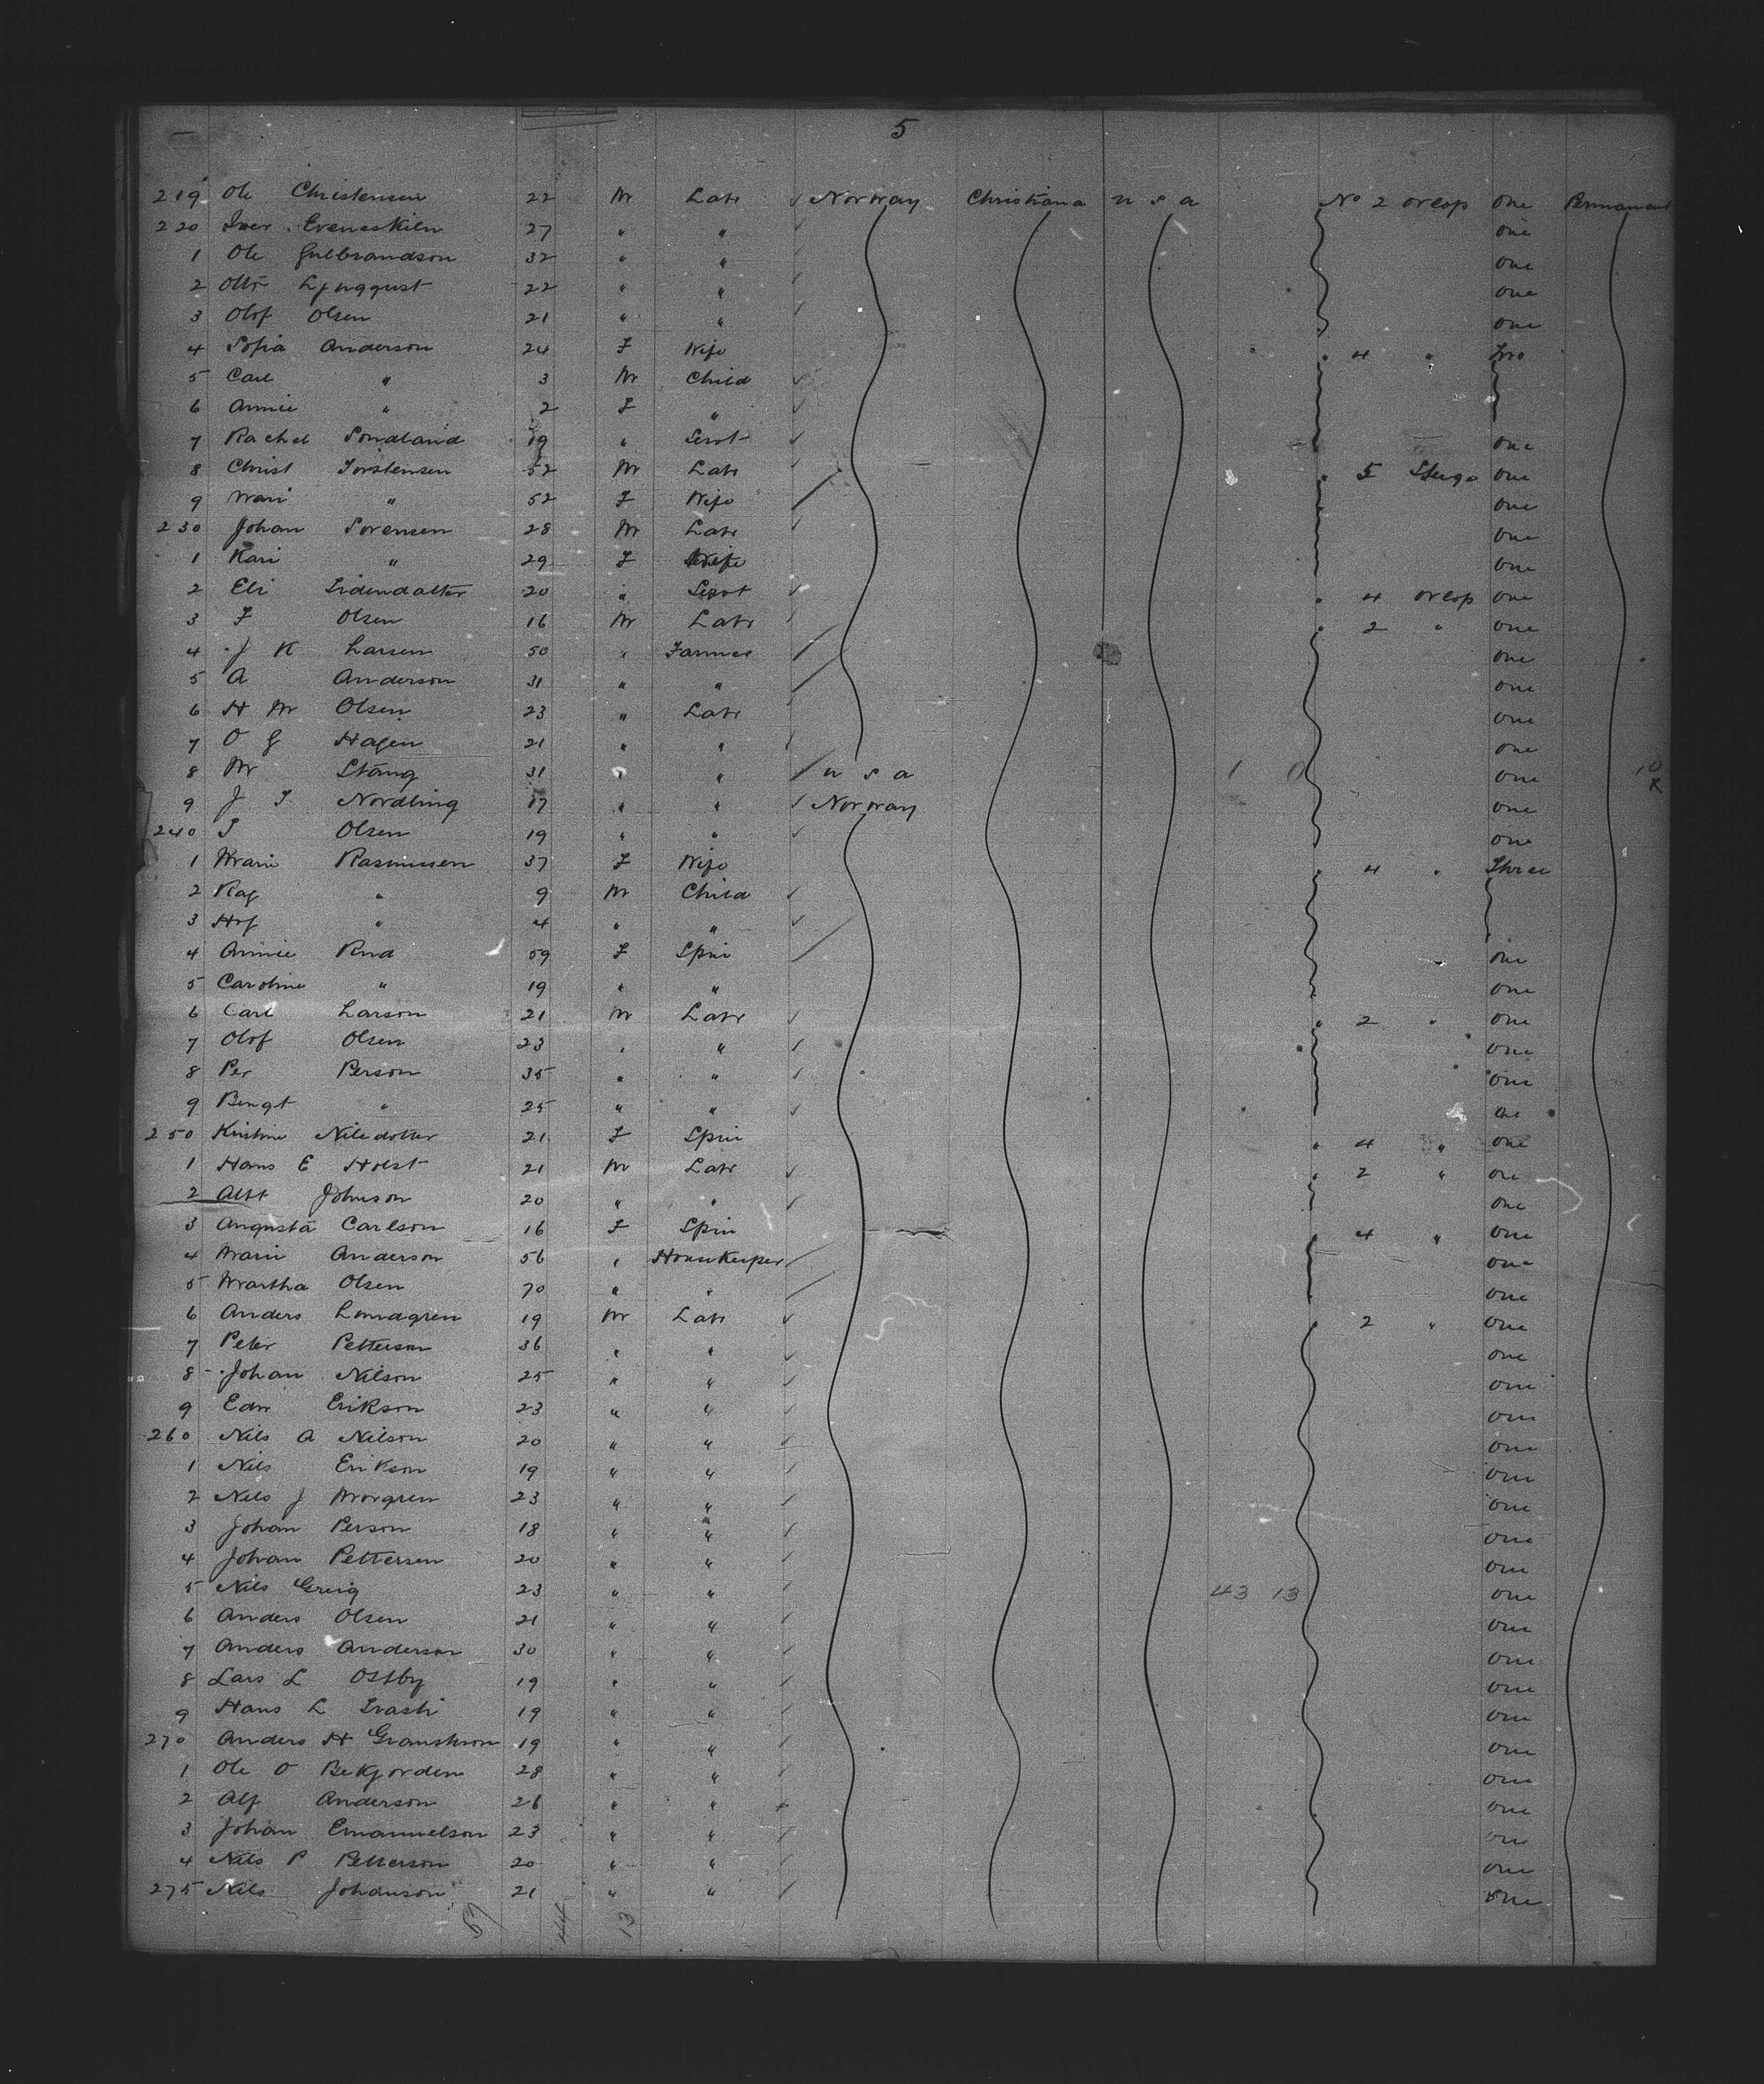 5
219 Ole Christensen 22 M Labr ✓ Norway Christiana U S A No 2 orlop one Permanant
220 Iver Eveneskiln 27 " " one
1 Ole Gulbrandson 32 " " one
2 Otto Ljngqust 22 " " one
3 Olof Olsen 21 " " one
4 Sofia Anderson 24 F Wife " 4 " Two
5 Carl " 3 M Child
6 Annie " 2 F "
7 Rachel Sondland 19 " Servt one
8 Christ Torstensen 52 M Labr " 5 Steege one
9 Mari " 52 F Wife one
230 Johan Sorensen 28 M Labr one
1 Kari " 29 F Wife one
2 Eli Lidendatter 20 " Servt " 4 orlop one
3 F Olsen 16 M Labr " 2 " one
4 J K Larsen 50 " Farmer one
5 A Anderson 31 " " one
6 H M Olsen 23 " Labr one
7 O G Hagen 21 " " one
8 M Stang 31 " " U S A 1 0 one 10
9 J T Nordling 17 " " Norway one
240 S Olsen 19 " " one
1 Marie Rasmussen 37 F Wife " 4 " Three
2 Rag " 9 M Child
3 Hof " 4 " "
4 Annie Rud 59 F Spin one
5 Caroline " 19 " " one
6 Carl Larson 21 M Labr " 2 " one
7 Olof Olsen 23 " " one
8 Per Person 35 " " one
9 Bengt " 25 " " one
250 Kristine Nilsdotter 21 F Spin " 4 " one
1 Hans E Holst 21 M Labr " 2 " one
2 Albt Johnson 20 " " one
3 Augusta Carlson 16 F Spin " 4 " one
4 Marie Anderson 56 " HouseKeeper one
5 Martha Olsen 70 " " one
6 Anders Lundgren 19 M Labr " 2 " one
7 Peter Petterson 36 " " one
8 Johan Nilson 25 " " one
9 Edw Erikson 23 " " one
260 Nils A Nilson 20 " " one
1 Nils Erikson 19 " " one
2 Nils J Morgren 23 " " one
3 Johan Person 18 " " one
4 Johan Pettersen 20 " " one
5 Nils Greig 23 " " 43 13 one
6 Anders Olsen 21 " " one
7 Anders Anderson 30 " " one
8 Lars L Ostby 19 " " one
9 Hans L 19 " " one
270 Anders H 19 " " one
1 Ole O Bekjorden 28 " " one
2 Alf Anderson 26 " " one
3 Johan Emanuelson 23 " " one
4 Nils P Petterson 20 " " one
275 Nils Johanson 21 " " one
57 44 13